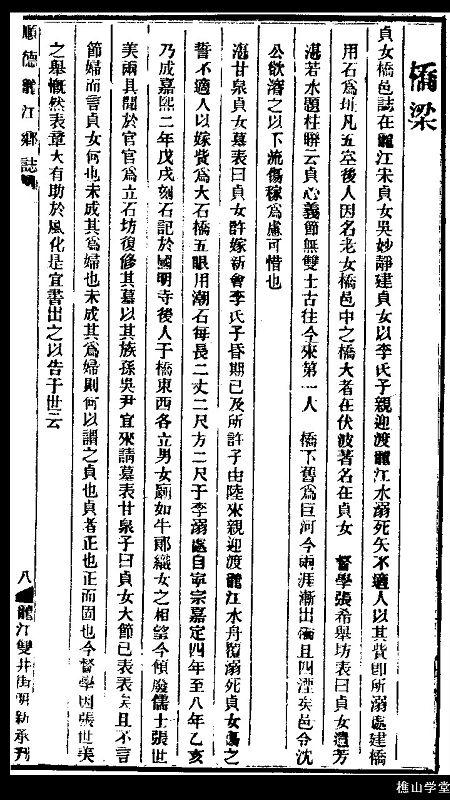 橋梁
貞女橋邑誌在龍江宋貞女吳妙靜建貞女以李氏子親迎渡龍江水溺死矢不適人以其貲卽所溺處建橋
用石爲址凡五空後人因名老女橋邑中之橋大者在伏波著名在貞女 督學張希舉坊表曰貞女遺芳
湛若水題柱聯云貞心義節無雙士古往今來第一人 橋下舊爲巨河今兩涯漸出且四湮矣邑令沈
公欲濬之以下流傷稼爲慮可惜也
湛甘泉貞女墓表曰貞女許嫁新會李氏子昏期已及所許子由陸來親迎渡龍江水舟覆溺死貞女傷之
誓不適人以嫁貲爲大石橋五眼用潮石每長二丈二尺方二尺于李溺處自寧宗嘉定四年至八年乙亥
乃成嘉熙二年戊戌刻石記於國明寺後人于橋東西各立男女廟如牛郞織女之相望今傾廢儒士張世
美兩具聞於官官爲立石坊復修其墓以其族孫吳尹宜來請墓表甘泉子曰貞女大節已表表矣且不言
節婦而言貞女何也未成其爲婦也未成其爲婦則何以謂之貞也貞者正也正而固也今督學因張世美
之舉慨然表章大有助於風化是宜書出之以告于世云
順德龍江鄉誌
八
龍江雙井街明新承刊
樵山学堂